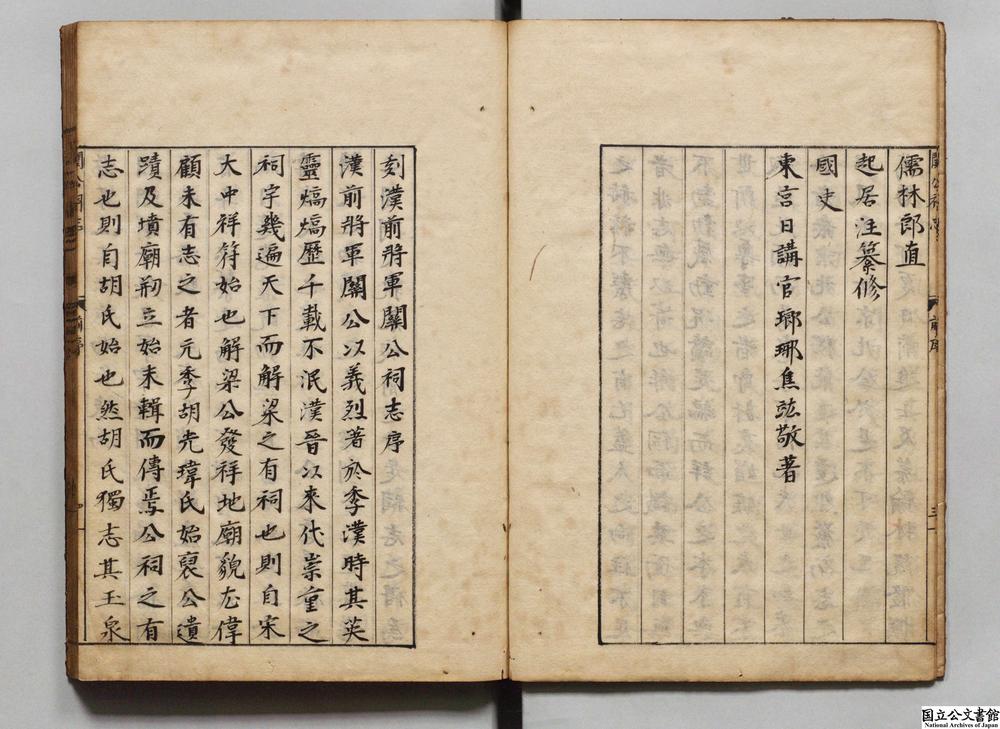 儒林郎直
起居注纂修
國史
東宮日講官瑯琊焦竑敬著
刻漢前將軍關公祠志序
漢前將軍關公以義烈著於季漢時其英
靈熇熇歷千載不泯漢晉以來代崇重之
祠宇幾遍天下而解梁之有祠也則自宋
大中祥符始也解梁公發祥地廟貌尤偉
顧未有志之者元季胡光瑋氏始裒公遺
蹟及墳廟剏立始末輯而傳焉公祠之有
志也則自胡氏始也然胡氏獨志其玉泉
国立公文書館
National Archives of Japan